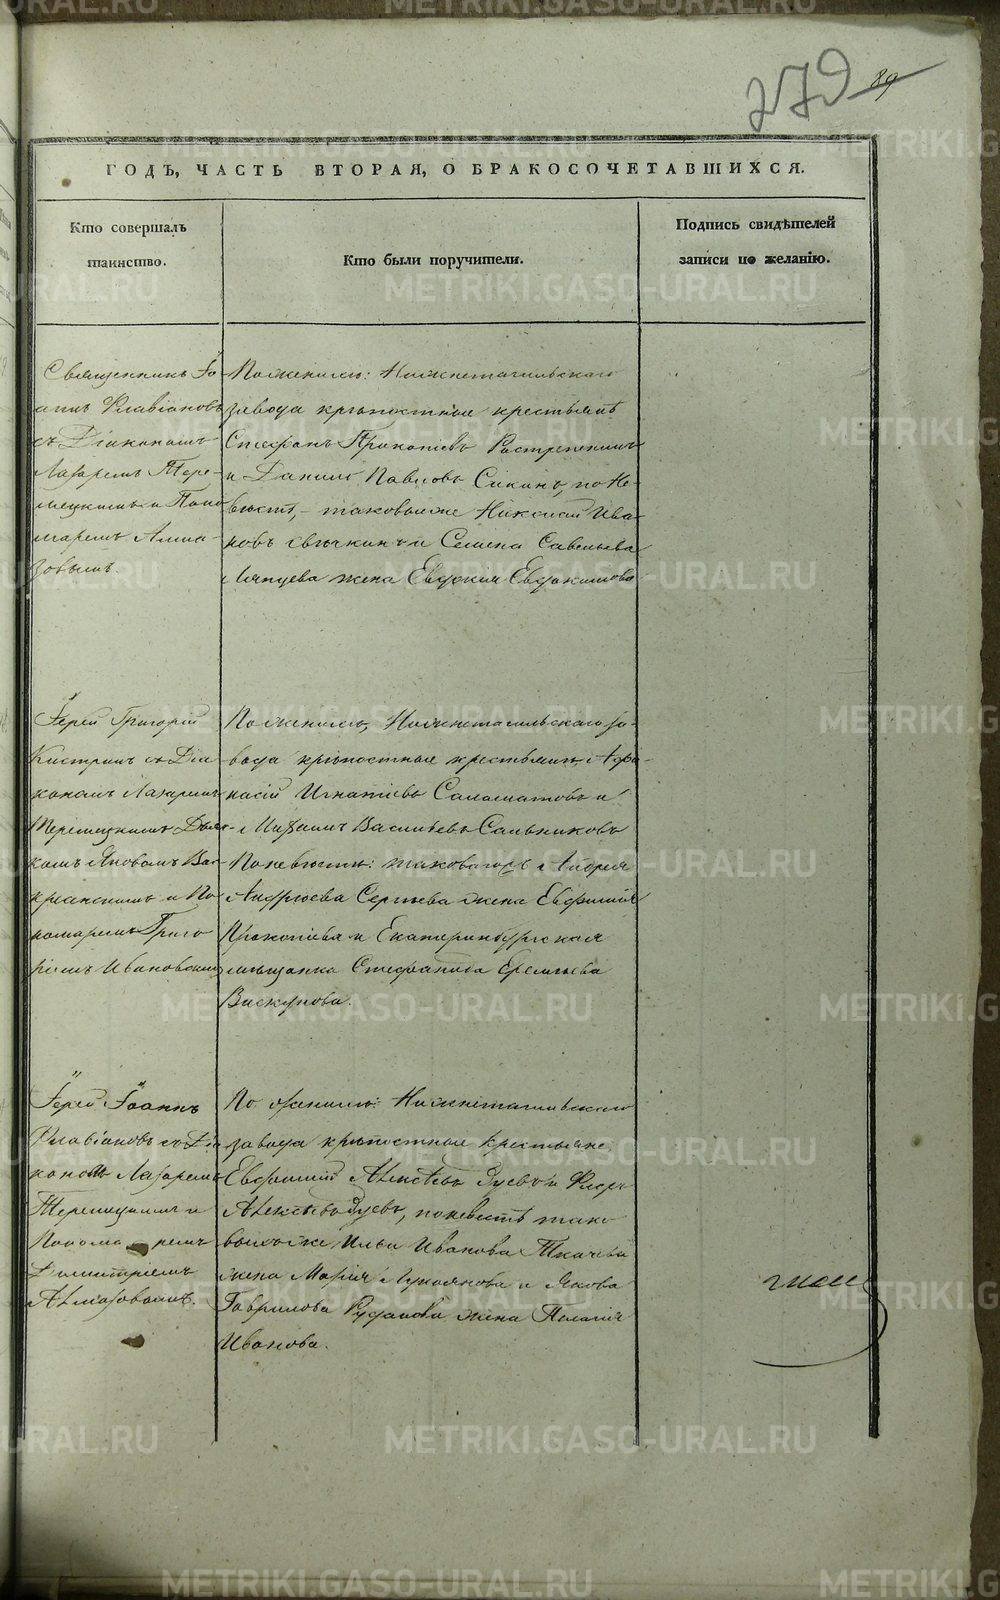 279
89
ГОДЪ, ЧАСТЬ ВТОРАЯ, О БРАКОСОЧЕТАВШИХСЯ.
Кто совершалъ
таинство.
Кто были поручители.
Подпись свидѣтелей
записи по желанію.
Священникъ Іо-
аннъ Флавіановъ
съ Діакономъ
Лазаремъ Тере-
мецкимъ и Поно-
маремъ Алма-
зовымъ.
По женихѣ: Нижнетагильскаго
завода крѣпостные крестьянѣ
Стефанъ Прокопіевъ
и Данилъ Павловъ Сикинъ, по не-
вѣстѣ, таковыеже Ива-
новъ Свѣчкинъ и Семена Савельева
Ляпцева жена Евдокія Евдокимова
Іерей Григорій
съ Діа-
кономъ Лазаремъ
Теремецкимъ Дьяч-
комъ Яковомъ Вос-
кресенскимъ и По-
номаремъ Григо
ріемъ Ивановскимъ
По женихѣ, Нижнетагильскаго за-
вода крѣпостные крестьянѣ Афа-
насій Игнатіевъ Саламатовъ и
Василіевъ Сальниковъ
По невѣстѣ: таковагожъ Андрея
Андрѣева Сергѣева жена Евфимія
Прокопіева и Екатеринбургская
мѣщанка Стефанида Еремѣева
Іерей Іоаннъ
Флавіановъ съ Діа
кономъ Лазаремъ
Теремецкимъ и
Пономаремъ
Димитріемъ
Алмазовымъ.
По женихѣ: Нижнетагильскаго
завода крѣпостные крестьяне
Евфимій Алексѣевъ Зуевъ и
Алексѣевъ Зуевъ, по невѣстѣ тако
выхъ же Ильи Иванова Ткачева
жена Марія Лукоянова и Якова
Гаврилова Рудакова жена Пелагія
Иванова.
METRIKI.GASO-URAL.RU